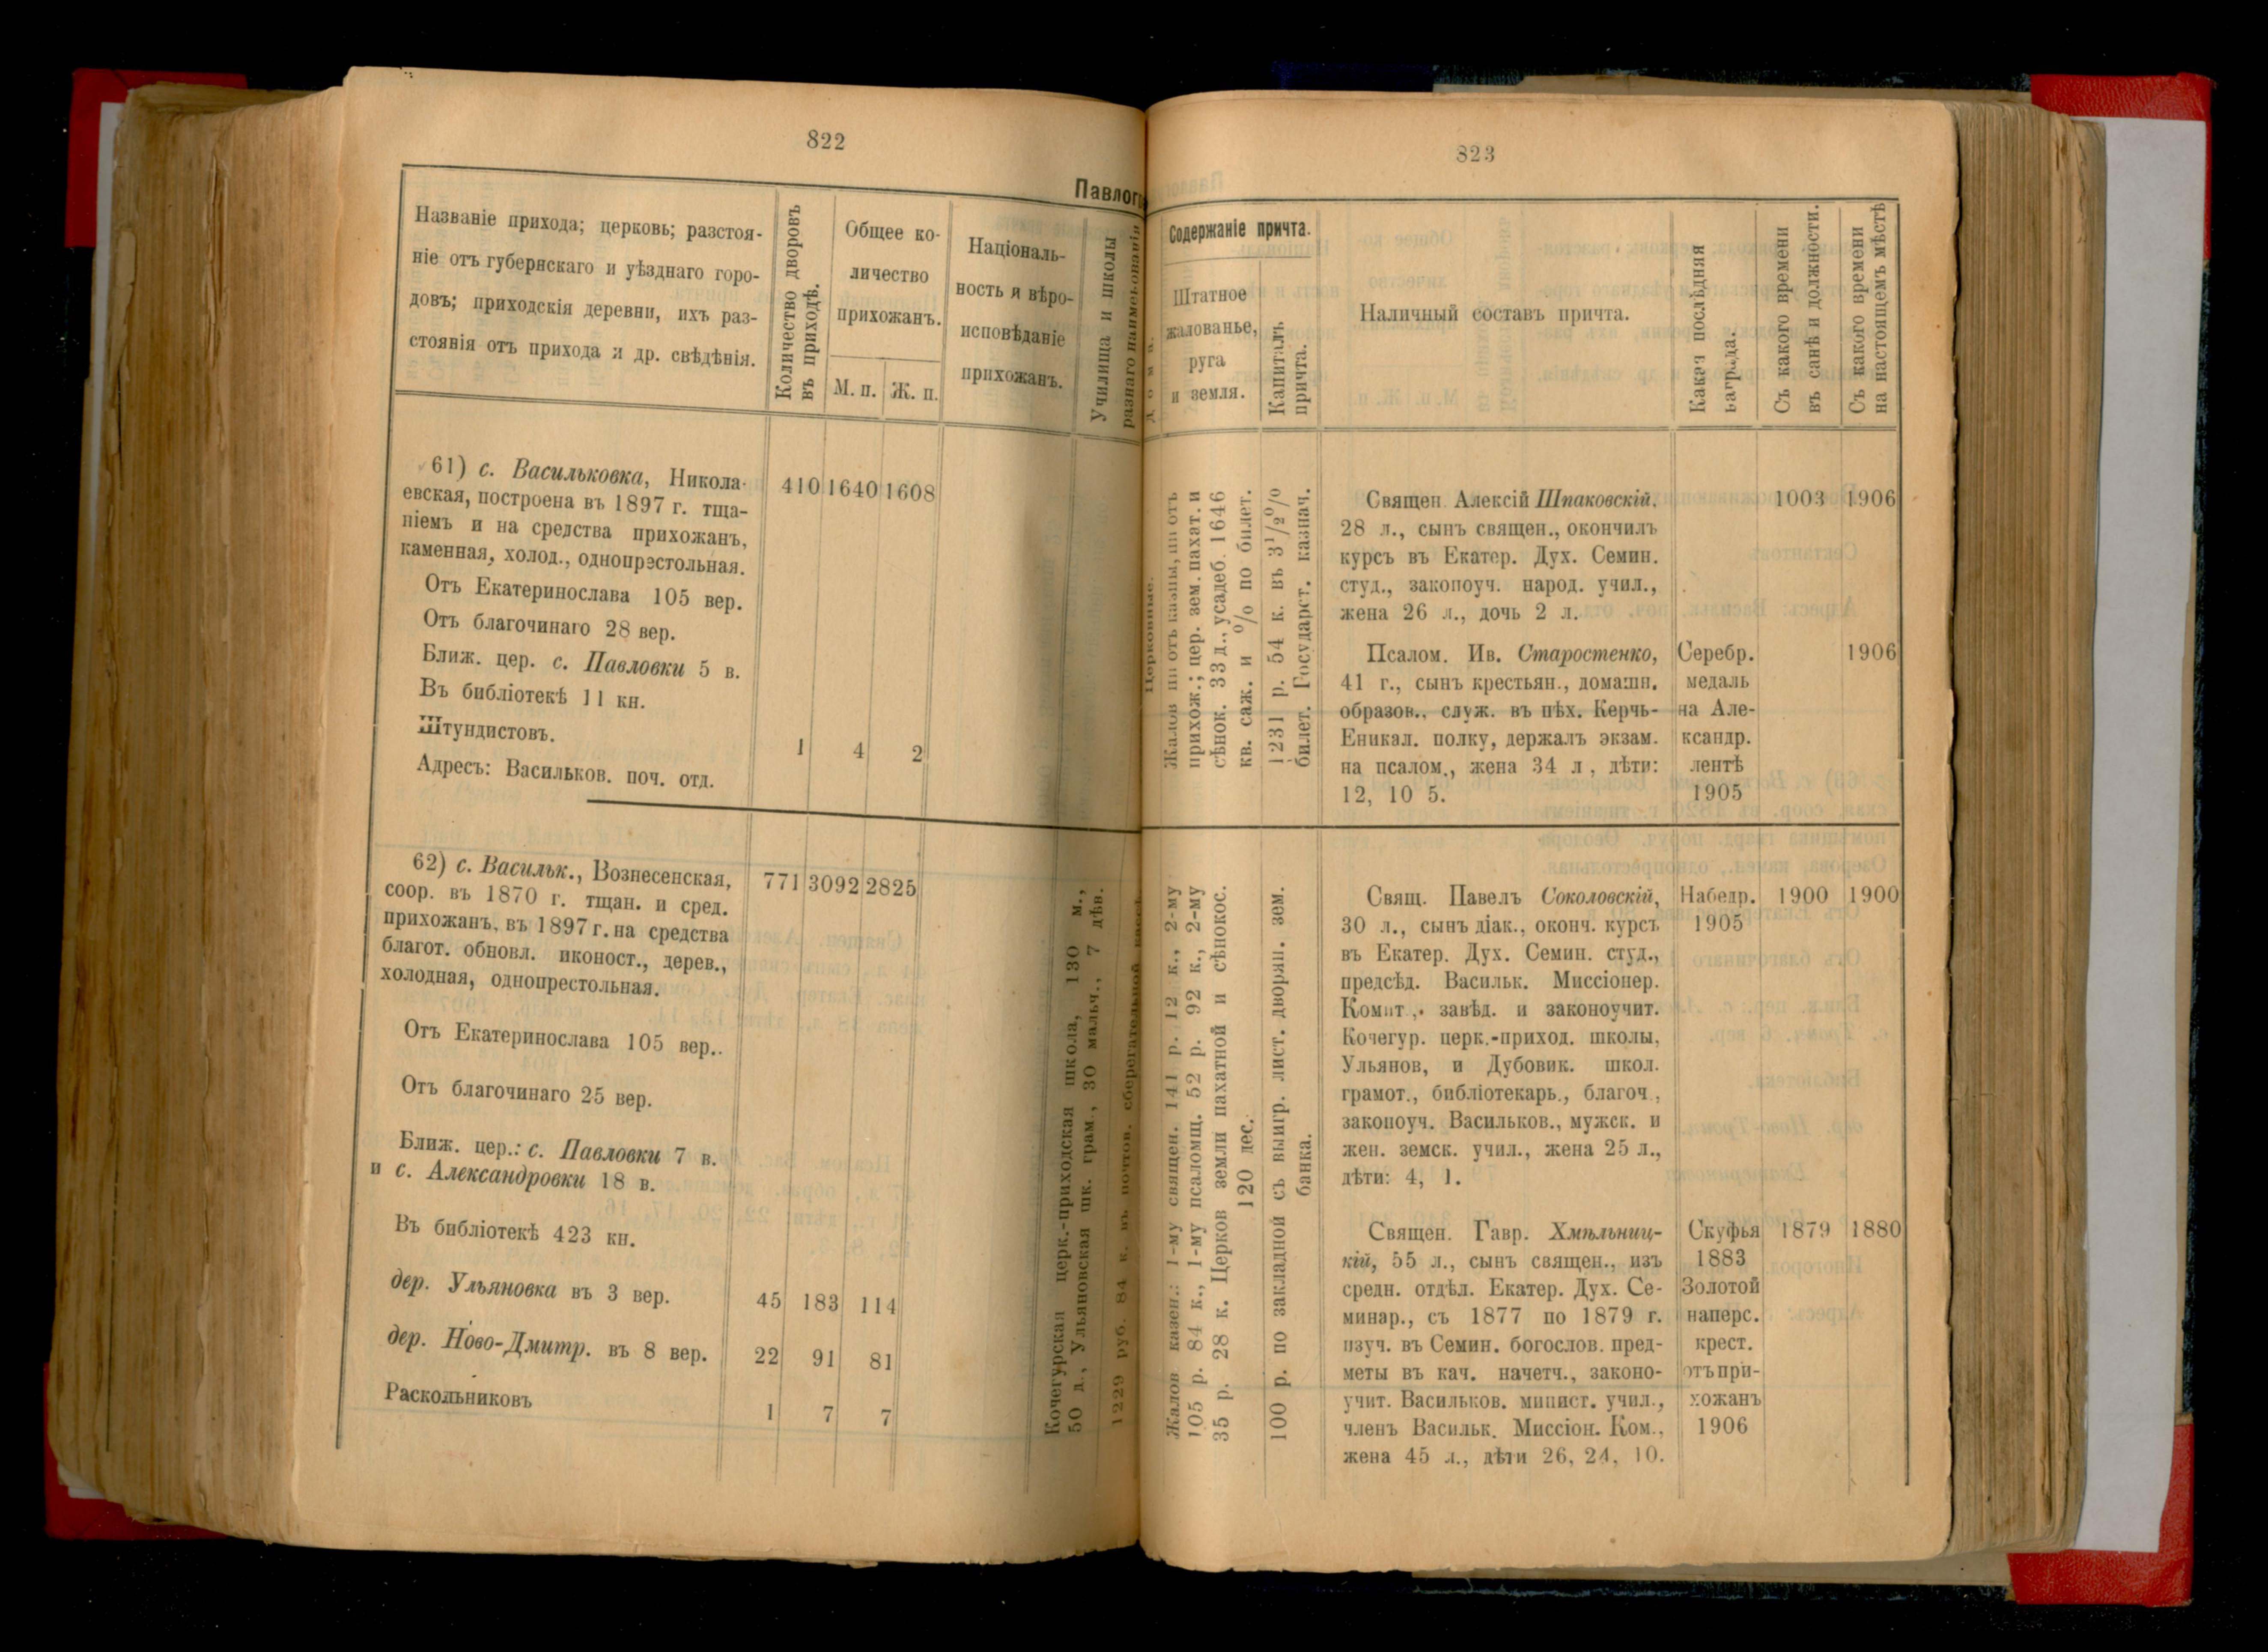 822
Павлогр
Названіе прихода; церковь; разстоя-
ніе отъ губернскаго и уѣзднаго горо-
довъ; приходскія деревни, ихъ раз-
стоянія отъ прихода и др. свѣдѣнія.
Количество дворовъ
въ приходѣ.
Общее ко-
личество
прихожанъ.
М. п.
Ж. п.
Націоналъ-
ность и вѣро-
исповѣданіе
прихожанъ.
Училища и школы
разнаго наименованія
61) с. Васильковка, Никола-
евская, построена въ 1897 г. тща-
ніемъ и на средства прихожанъ,
каменная, холод., однопрэстольная.
410 1640 1608
Отъ Екатеринослава 105 вер.
Отъ благочинаго 28 вер.
Ближ. цер. с. Павловки 5 в.
Въ библіотекѣ 11 кн.
Штундистовъ. 1 4 2
Адресъ: Васильков. поч. отд.
62) с. Васильк., Вознесенская,
соор. въ 1870 г. тщан. и сред.
прихожанъ, въ 1897 г. на средства
благот. обновл. иконост., дерев.,
холодная, однопрестольная.
771 3092 2825
Отъ Екатеринослава 105 вер..
Отъ благочинаго 25 вер.
Ближ. цер.: с. Павловки 7 в.
и с. Александровки 18 в.
Въ библіотекѣ 423 кн.
дер. Ульяновка въ 3 вер. 45 183 114
дер. Ново-Дмитр. въ 8 вер. 22 91 81
Раскольниковъ 1 7 7
Кочегурская церк.-приходская школа, 130 м.,
50 д., Ульяновская шк. грам., 30 мальч., 7 дѣв.
1229 руб. 84 к. въ почтов. сберегательной кассѣ.
823
Дома.
Содержаніе причта.
Штатное
жалованье,
руга
и земля.
Капиталъ
причта.
Наличный составъ причта.
Какая послѣдняя
награда.
Съ какого времени
въ санѣ и должности.
Съ какого времени
на настоящемъ мѣстѣ
Церковные.
Жалов ни отъ казны, ни отъ
прихож.; цер. зем. пахат. и
сѣнок. 33 д., усадеб. 1646
кв. саж. и % по билет.
1231 р. 54 к. въ 3¹/₂%
билет. Государст. казнач.
Священ. Алексій Шпаковскій,
28 л., сынъ священ., окончилъ
курсъ въ Екатер. Дух. Семин.
студ., закопоуч. народ. учил.,
жена 26 л., дочь 2 л.
1003 1906
Псалом. Ив. Старостенко,
41 г., сынъ крестьян., домашн.
образов., служ. въ пѣх. Керчь-
Еникал. полку, держалъ экзам.
на псалом., жена 34 л , дѣти:
12, 10 5.
Серебр.
медаль
на Але-
ксандр.
лентѣ
1905
1906
Жалов казен.: 1-му священ. 141 р. 12 к., 2-му
105 р. 84 к., 1-му псаломщ. 52 р. 92 к., 2-му
35 р. 28 к. Церков земли пахатной и сѣнокос.
120 дес.
100 р. по закладной съ выигр. лист. дворян. зем.
банка.
Свящ. Павелъ Соколовскій,
30 л., сынъ діак., оконч. курсъ
въ Екатер. Дух. Семин. студ.,
предсѣд. Васильк. Миссіонер.
Комит., завѣд. и законоучит.
Кочегур. церк.-приход. школы,
Ульянов, и Дубовик. школ.
грамот., библіотекарь., благоч.,
закопоуч. Васильков., мужск. и
жен. земск. учил., жена 25 л.,
дѣти: 4, 1.
Набедр.
1905
1900 1900
Священ. Гавр. Хмѣльниц-
кій, 55 л., сынъ священ., изъ
средн. отдѣл. Екатер. Дух. Се-
минар., съ 1877 по 1879 г.
изуч. въ Семин. богослов. пред-
меты въ кач. начетч., законо-
учит. Васильков. минист. учил.,
членъ Васильк. Миссіон. Ком.,
жена 45 л., дѣти 26, 24, 10.
Скуфья
1883
Золотой
наперс.
крест.
отъ при-
хожанъ
1906
1879 1880